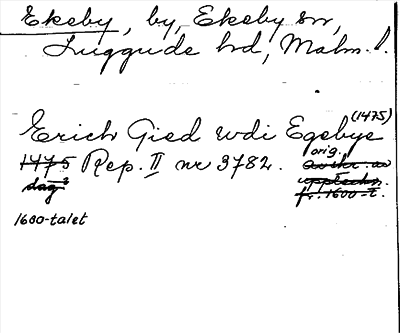 Ekeby, by, Ekeby sn,
Luggude hd, Malm. l.
(1475)
Erich Gied wdi Egebye
1475 Rep. II nr 3782. orig.
dag
avskr. av
uppteckn.
fr. 1600-t.
1600-talet